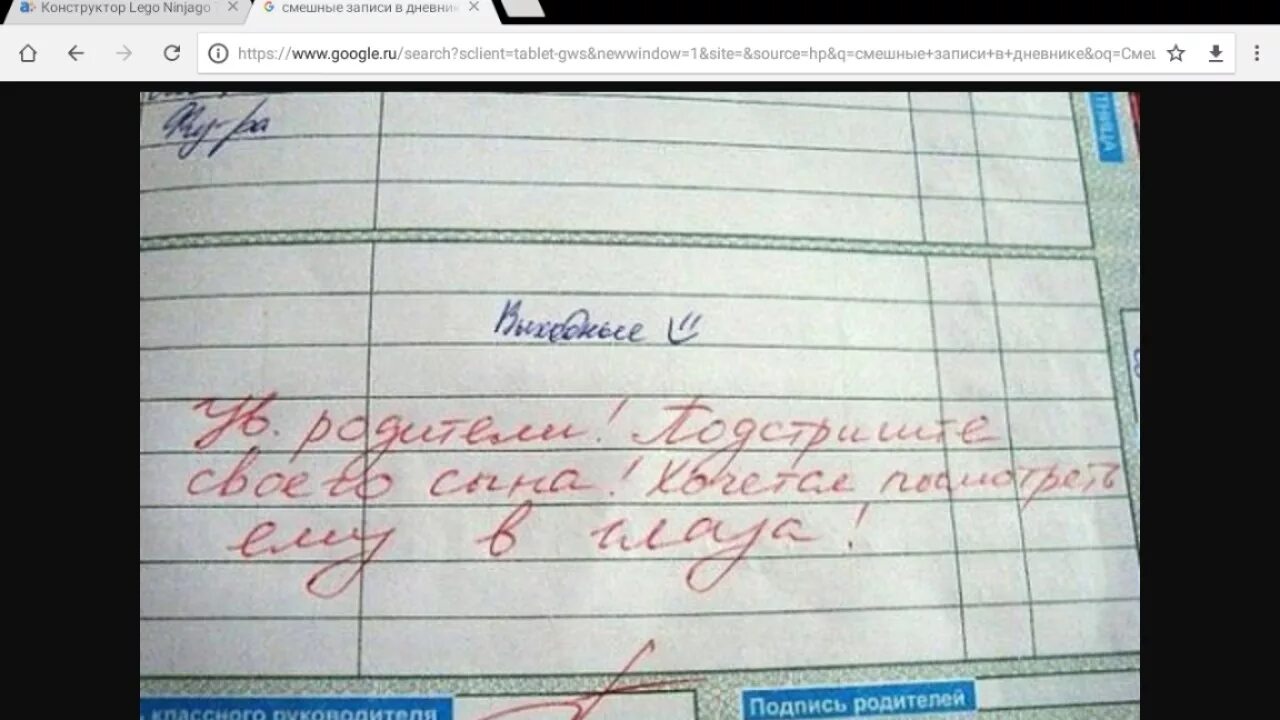 Конструктор Lego Ninjago
смешные записи в дневник
https://www.google.ru/search?sclient=tablet-gws&newwindow=1&site=&source=hp&q=смешные+записи+в+дневнике&oq=Сме
Фз-ра
ТНИЦА
Выходные
Ув. родители! Подстригите
своего сына! Хочется посмотреть
ему в глаза!
классного руководителя
Подпись родителей